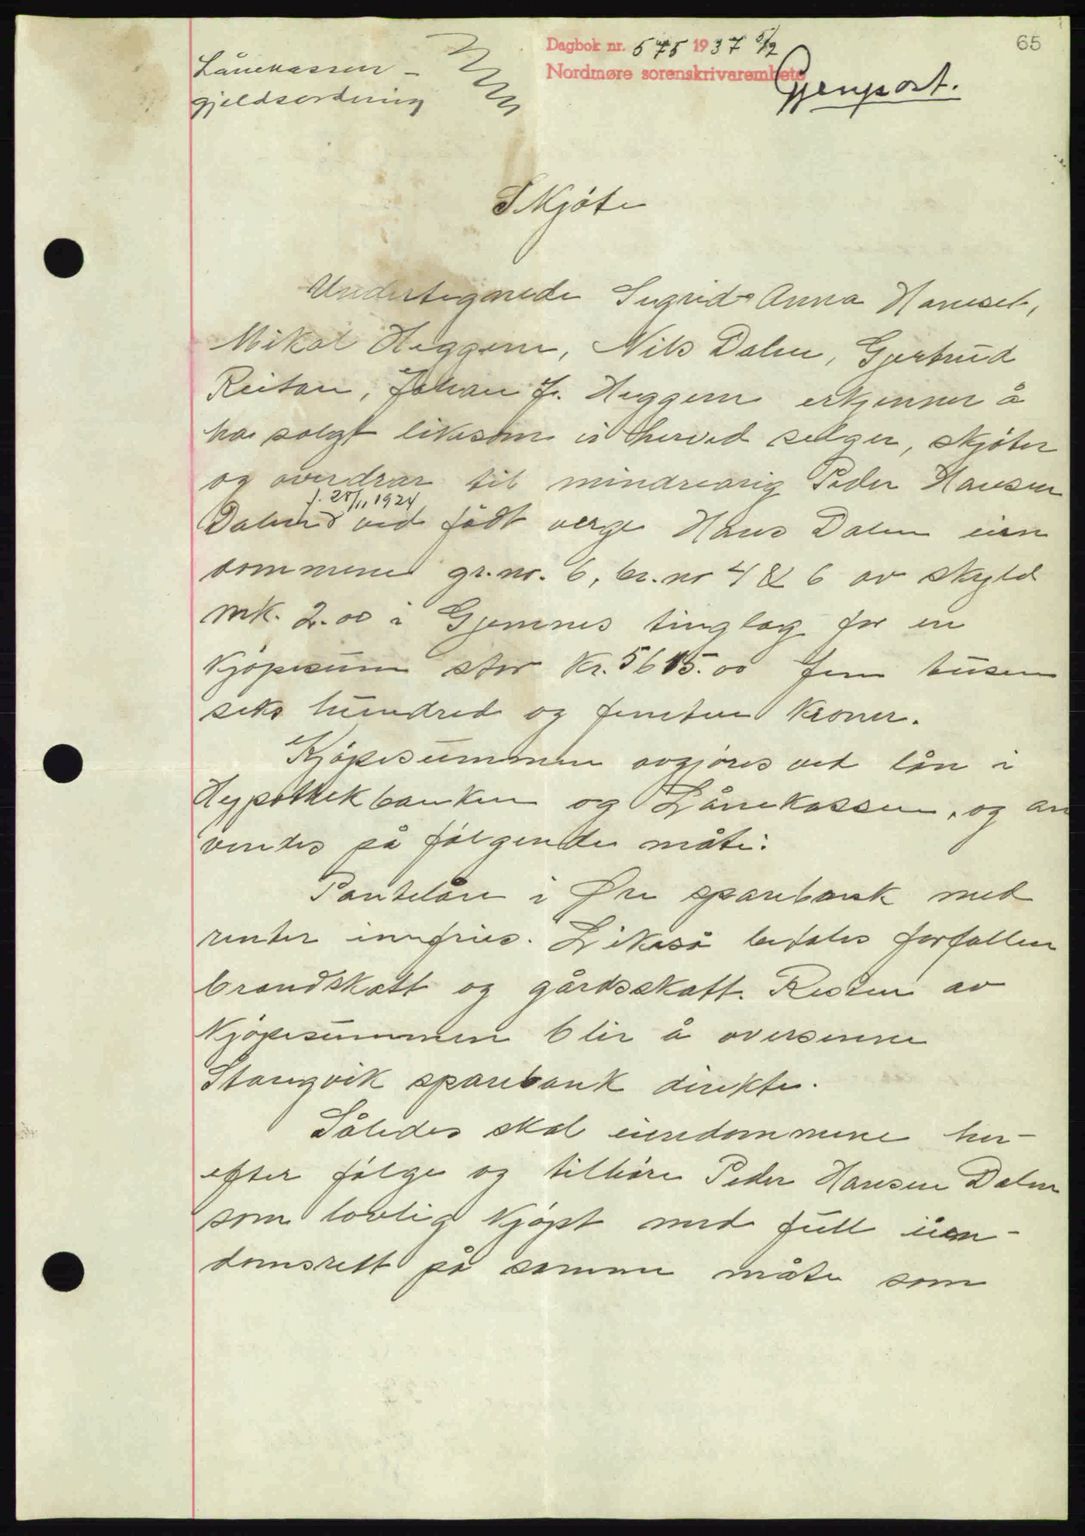 65
Dagbok nr. 575 1937 5/2
Nordmøre sorenskrivarembete
Gjenpart.
Lånekassen –
gjeldsordning
Skjøte
Undertegnede Sigrid Anna Hameset,
Mikal Heggem, Nils Dalen, Gjertrud
Reitan, Johan J. Heggem erkjenner å
ha solgt likesom vi herved selger, skjøter
og overdrar til mindreårig Peder Hansen
f. 25/11 1924
Dalen ved født verge Hans Dalen eien
dommene gr.nr. 6, br.nr 4 & 6 av skyld
mk. 2.00 i Gjemnes tinglag for en
kjøpesum stor kr. 5615.00 fem tusen
seks hundred og femten kroner.
Kjøpesummen avgjøres ved lån i
Hypothekbanken og Lånekassen, og an
vendes på følgende måte:
Pantelån i Øre sparebank med
renter innfries. Likeså betales forfallen
brandskatt og gårdsskatt. Resten av
kjøpesummen blir å oversenne
Stangvik sparebank direkte.
Således skal eiendommene her-
efter følge og tilhøre Peder Hansen Dalen
som lovlig kjøpt med full eien-
domsrett på samme måte som